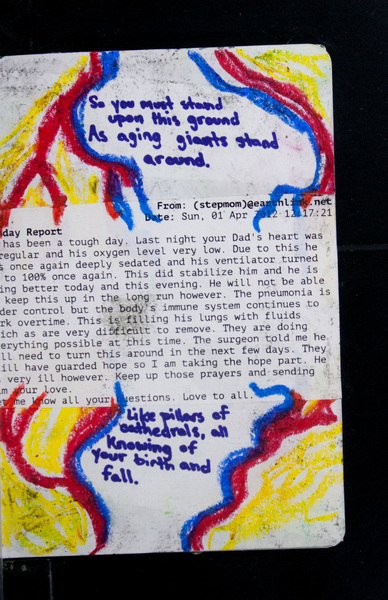 So you must stand
upon this ground
As aging giants stand
around.
From: (stepmom)@earthlink.net
Date: Sun, 01 Apr 2012 12:17:21
day Report
has been a tough day. Last night your Dad's heart was
regular and his oxygen level very low. Due to this he
s once again deeply sedated and his ventilator turned
to 100% once again. This did stabilize him and he is
ing better today and this evening. He will not be able
keep this up in the long run however. The pneumonia is
der control but the body's immune system continues to
rk overtime. This is filling his lungs with fluids
ich as are very difficult to remove. They are doing
erything possible at this time. The surgeon told me he
ll need to turn this around in the next few days. They
ill have guarded hope so I am taking the hope part. He
very ill however. Keep up those prayers and sending
m your love.
et me know all your questions. Love to all.
Like pillars of
cathedrals, all
knowing of
your birth and
fall.